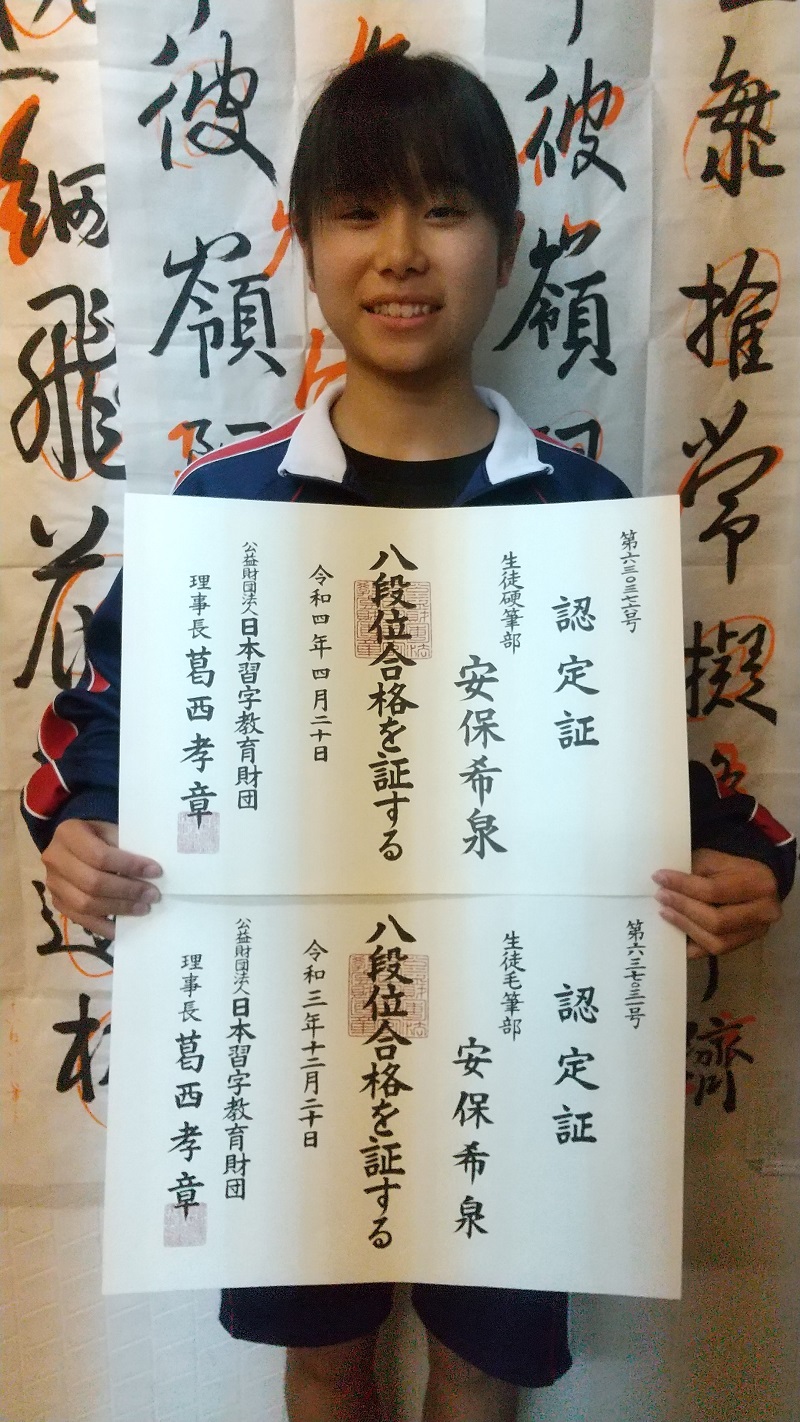 第六三〇三七六号
認定証
生徒硬筆部
安保希泉
八段位合格を証する
令和四年四月二十日
公益財団法人日本習字教育財団
理事長 葛西孝章
第六三七〇三一号
認定証
生徒毛筆部
安保希泉
八段位合格を証する
令和三年十二月二十日
公益財団法人日本習字教育財団
理事長 葛西孝章
推常擬
彼嶺
彼嶺
細飛花